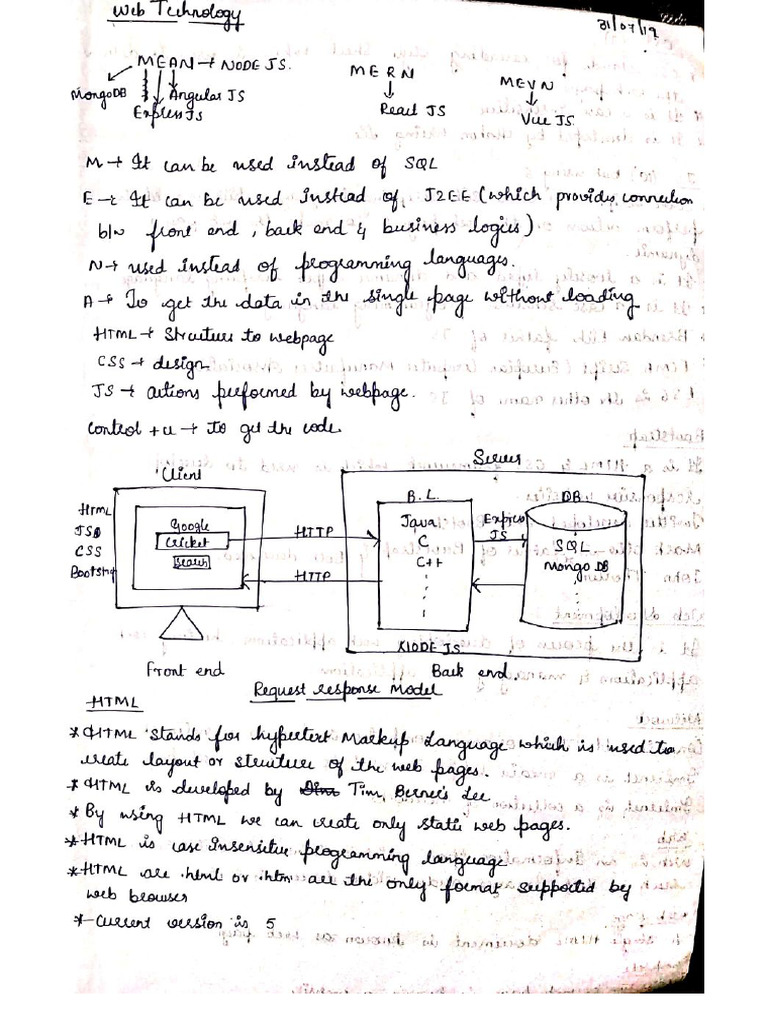 Web Technology
31/07/19
MEAN → NODE JS.
MongoDB
Angular JS
Express JS
MERN
React JS
MEVN
Vue JS
M → It can be used instead of SQL
E → It can be used instead of J2EE (which provides connection
b/w front end, back end & business logics)
N → used instead of programming languages.
A → To get the data in the single page without loading
HTML → Structure to webpage
CSS → design
JS → actions preformed by webpage.
Control + u → To get the code
Client
Server
HTML
JS
CSS
Bootstrap
Google
Cricket
Search
HTTP
HTTP
B.L.
Java
C
C++
Express
JS
DB
SQL
Mongo DB
NODE JS
Front end
Back end.
Request response Model
HTML
* HTML stands for hypertext Markup Language which is used to
create layout or structure of the web pages.
* HTML is developed by Tim Berner's Lee
* By using HTML we can create only static web pages.
* HTML is case insensitive programming language
* HTML are .html or .htm are the only format supported by
web browser
* Current version is 5